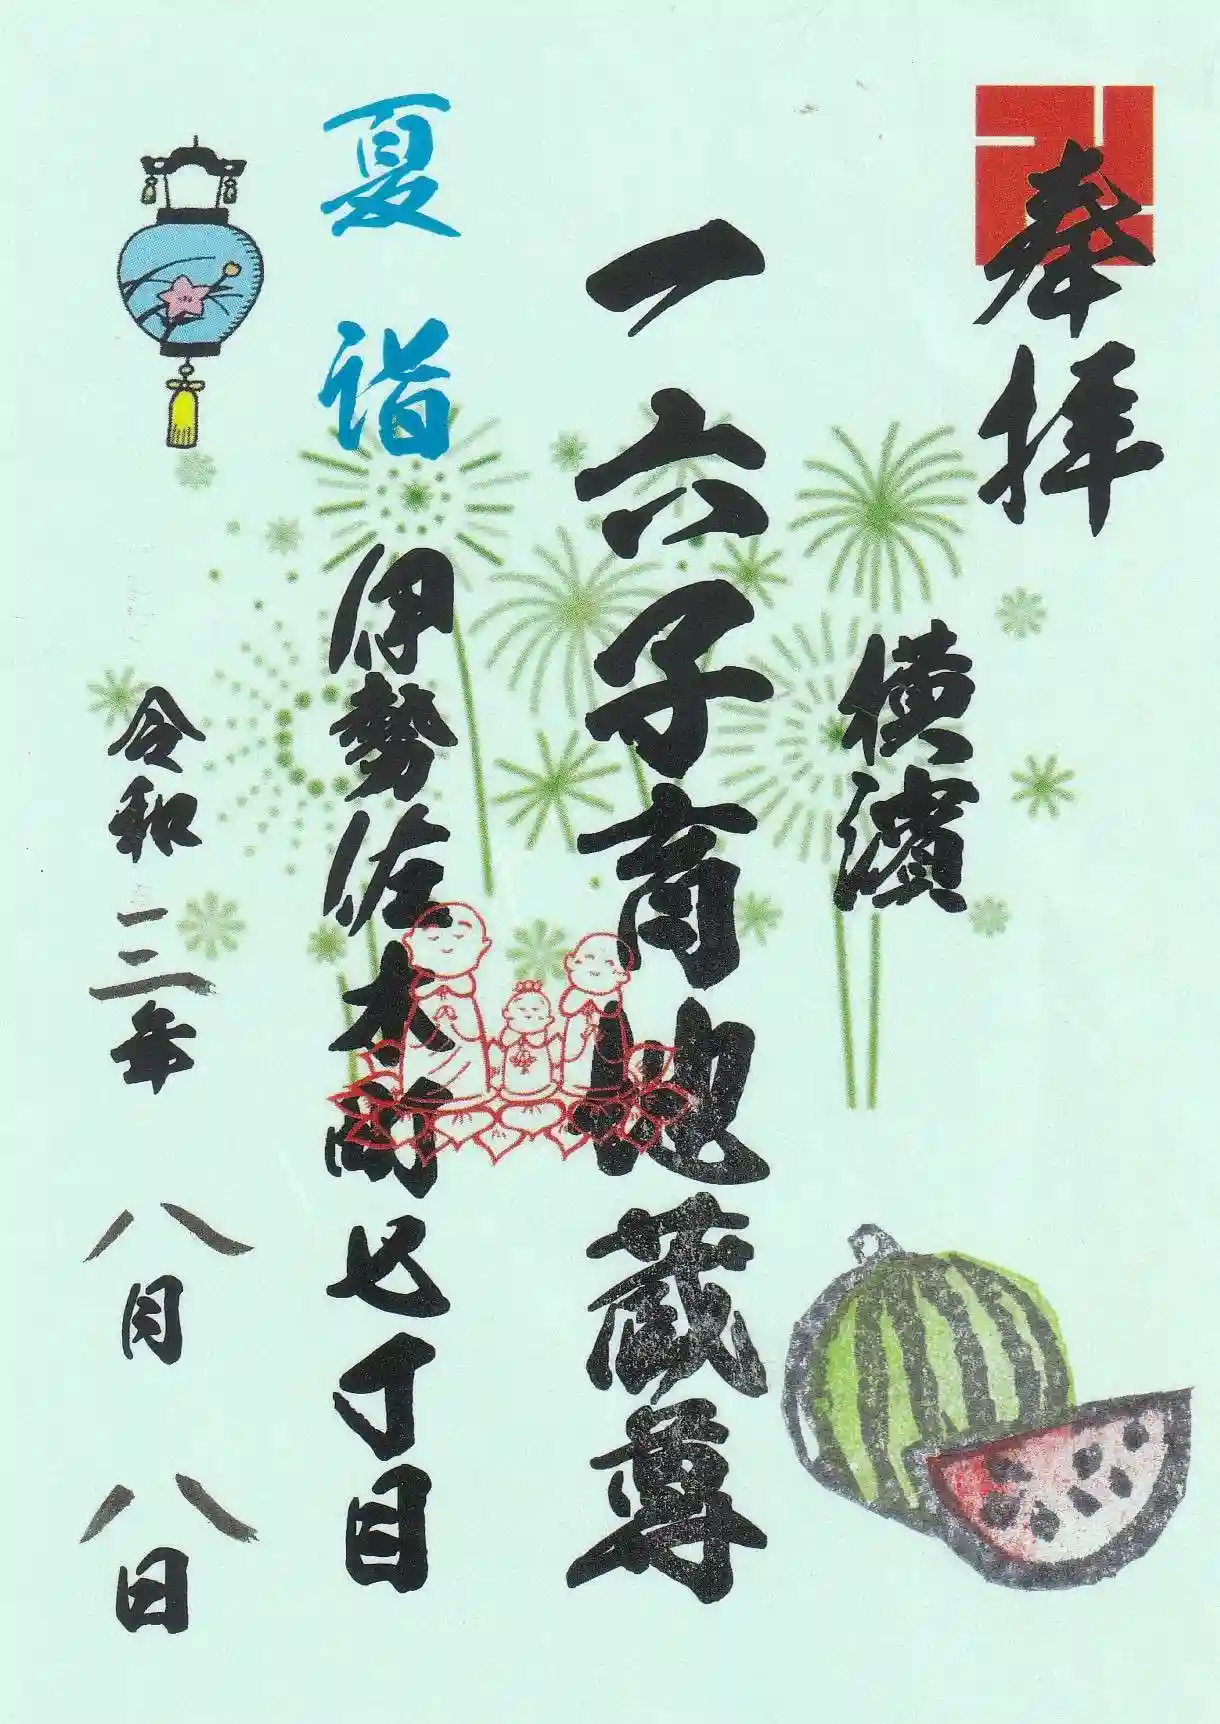 奉拝
横濱
一六子育地蔵尊
夏詣
伊勢佐木町七丁目
令和二年 八月 八日